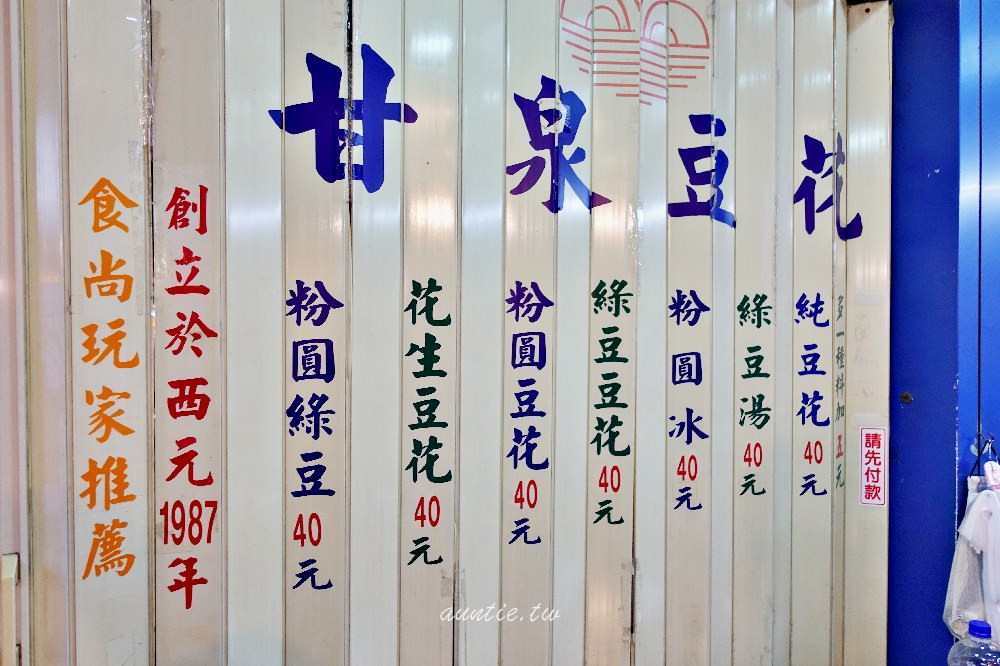 甘泉豆花
請先付款
多一種料加五元
純豆花40元
綠豆湯40元
粉圓冰40元
綠豆豆花40元
粉圓豆花40元
花生豆花40元
粉圓綠豆40元
創立於西元1987年
食尚玩家推薦
auntie.tw